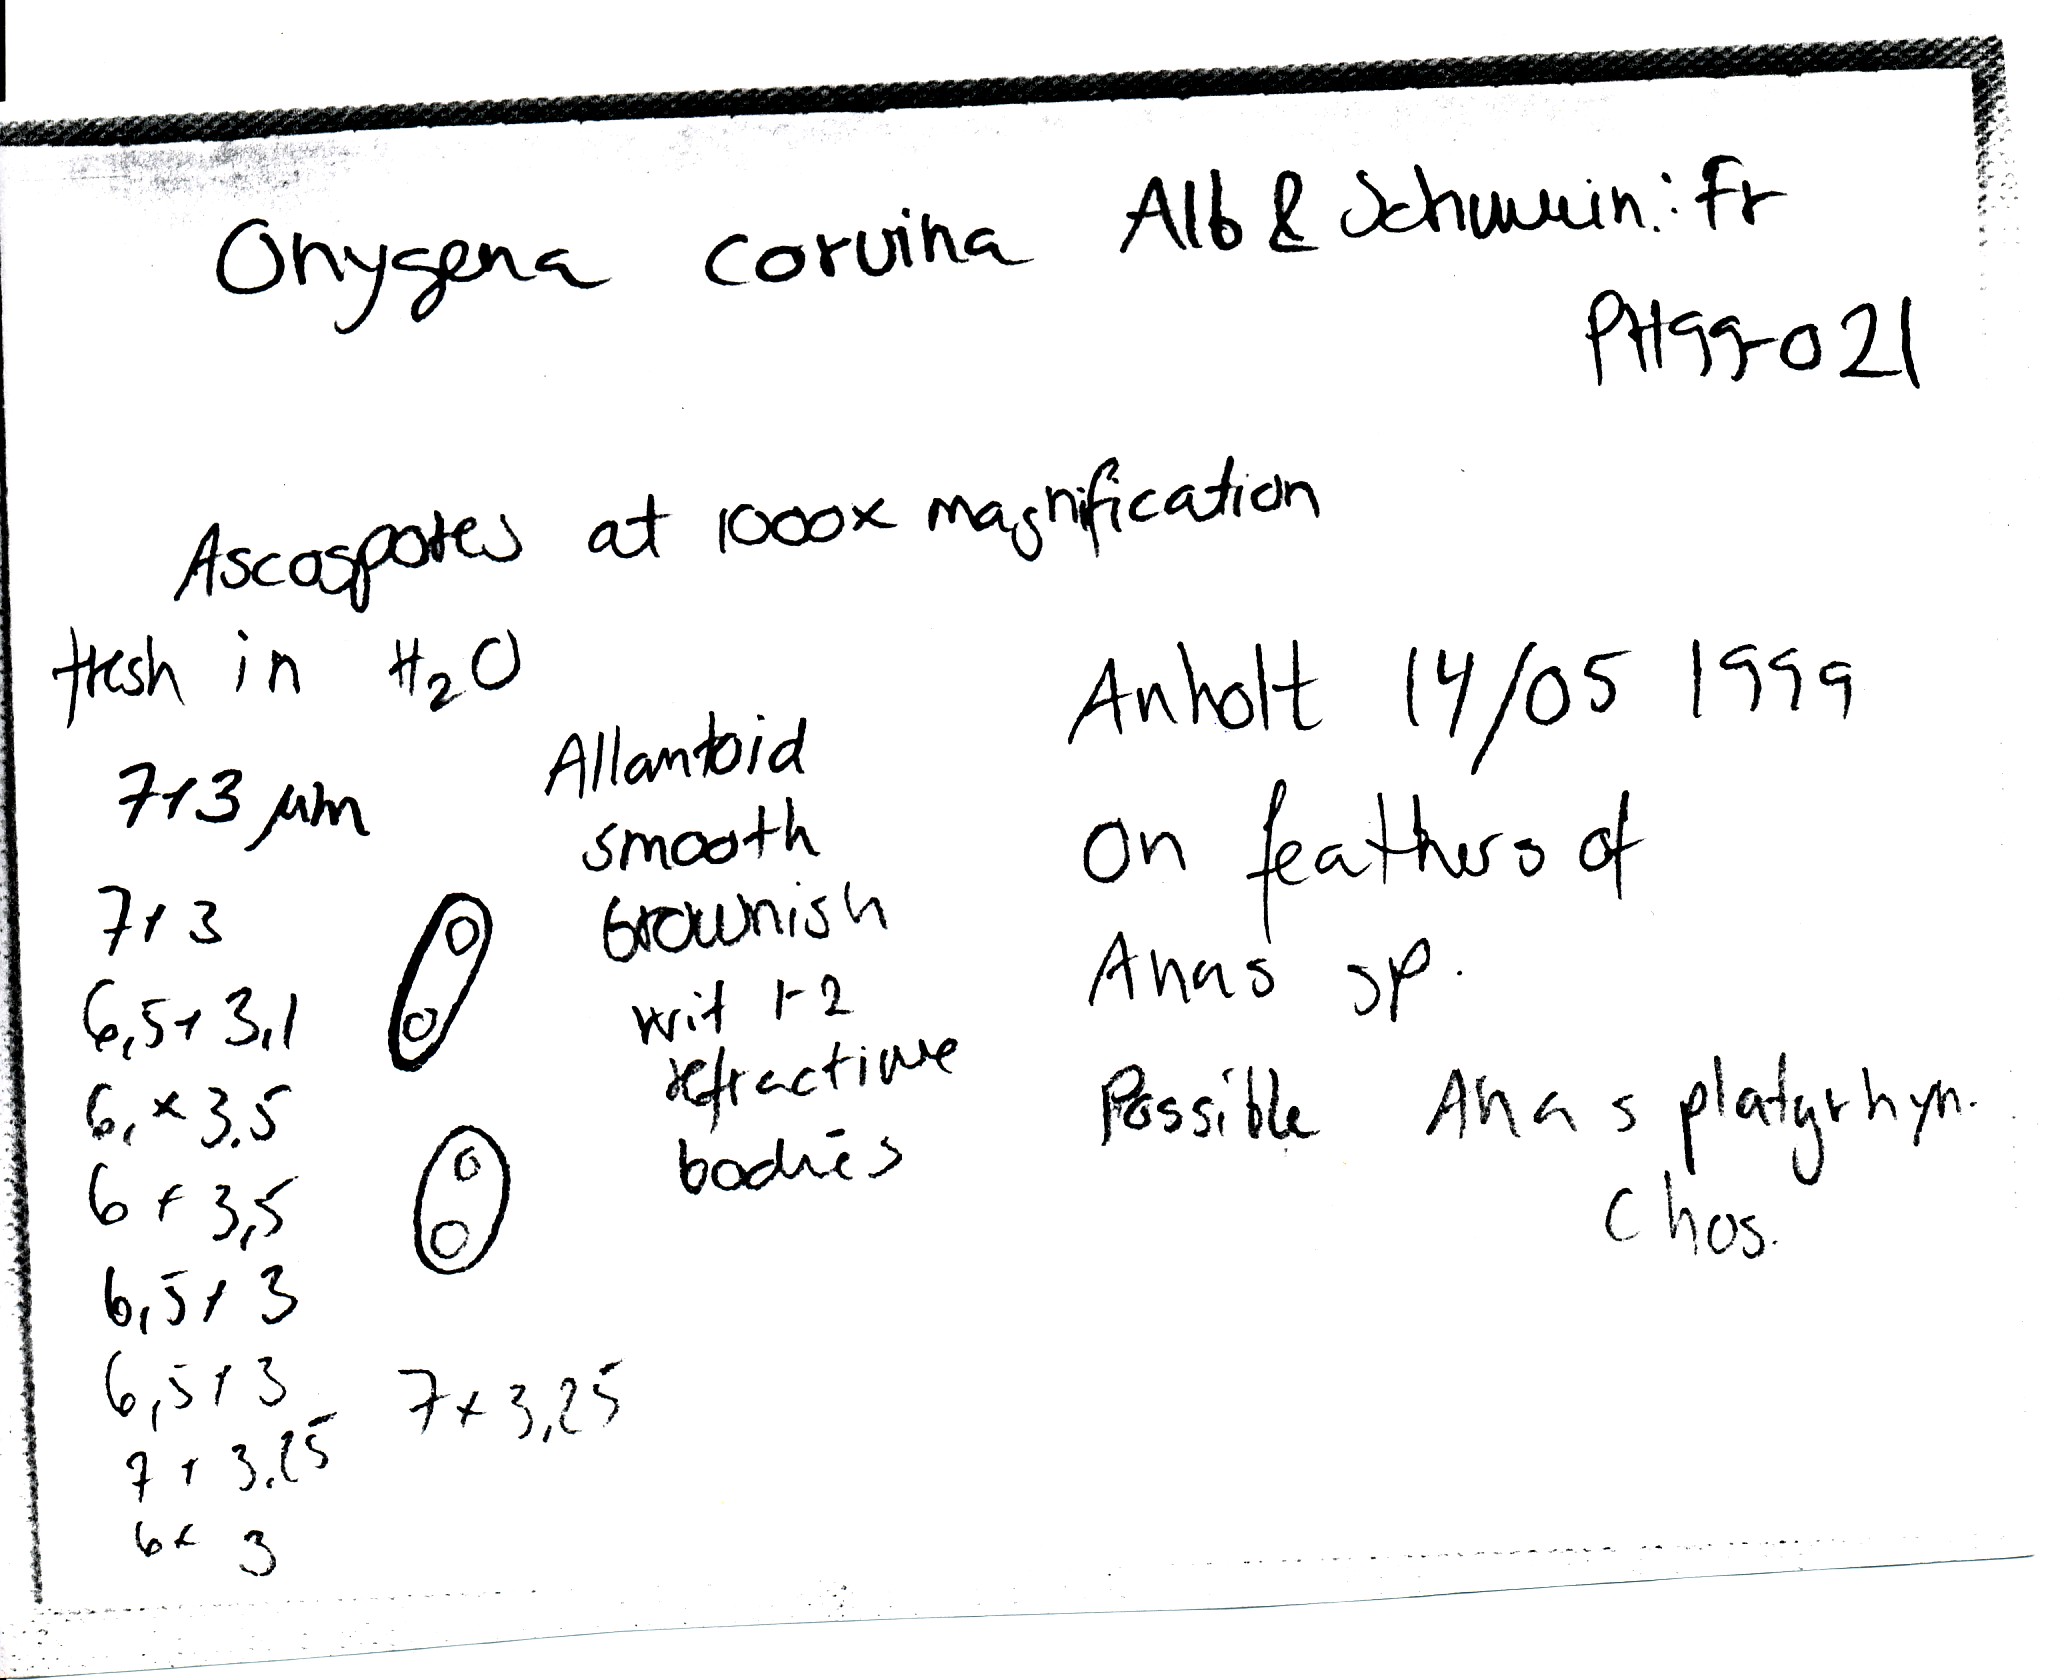 Onygena corvina Alb & Schwein.: Fr
PH99-021
Ascospores at 1000x magnification
fresh in H₂O
7x3 µm
7x3
6,5x3,1
6,x3.5
6x3,5
6,5x3
6,5x3
7x3.25
6x3
7x3,25
Allantoid
smooth
brownish
wit 1-2
refractive
bodies
Anholt 14/05 1999
on feathers of
Anas sp.
Possible Anas platyrhyn.
chos.